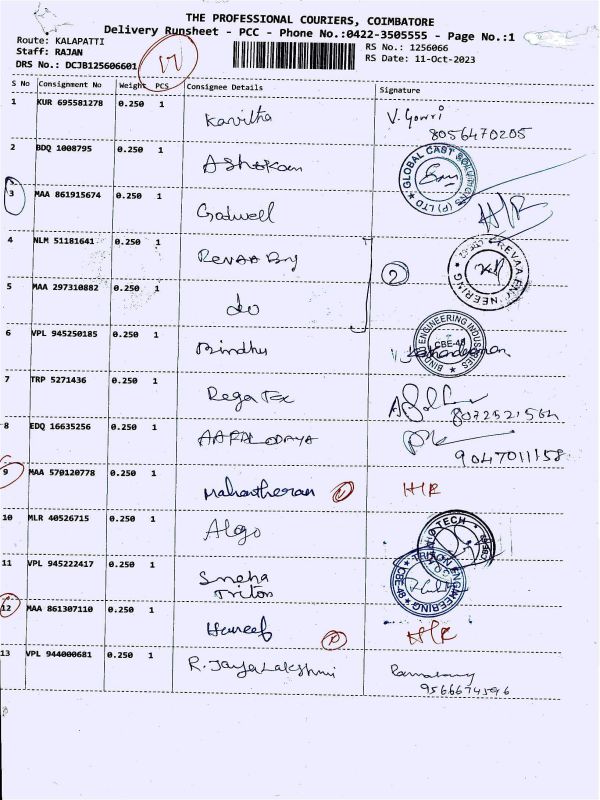 THE PROFESSIONAL COURIERS, COIMBATORE
Delivery Runsheet - PCC - Phone No.:0422-3505555 - Page No.:1
Route: KALAPATTI
RS No.: 1256066
Staff: RAJAN
RS Date: 11-Oct-2023
DRS No.: DCJB125606601
17
S No Consignment No Weight PCS Consignee Details Signature
1 KUR 695581278 0.250 1 Kavitha V. Gowri
8056470205
2 BDQ 1008795 0.250 1 Ashokan
GLOBAL CAST SOLUTIONS (P) LTD
3 MAA 861915674 0.250 1 Godwell H/R
4 NLM 51181641 0.250 1 Revaa Eng
2
REVAA ENGINEERING
5 MAA 297310882 0.250 1 do
6 VPL 945250185 0.250 1 Bindhu
BINDHU ENGINEERING INDUSTRIES
CBE-48
7 TRP 5271436 0.250 1 Rega Tex
8072521564
8 EDQ 16635256 0.250 1
9047011158
9 MAA 570120778 0.250 1 H/R
10 MLR 40526715 0.250 1 Algo
TECH
11 VPL 945222417 0.250 1 Sneha
Triton
TRITON ENGINEERING
12 MAA 861307110 0.250 1 Haneef H/R
13 VPL 944000681 0.250 1 R. Jayalakshmi
9566674596